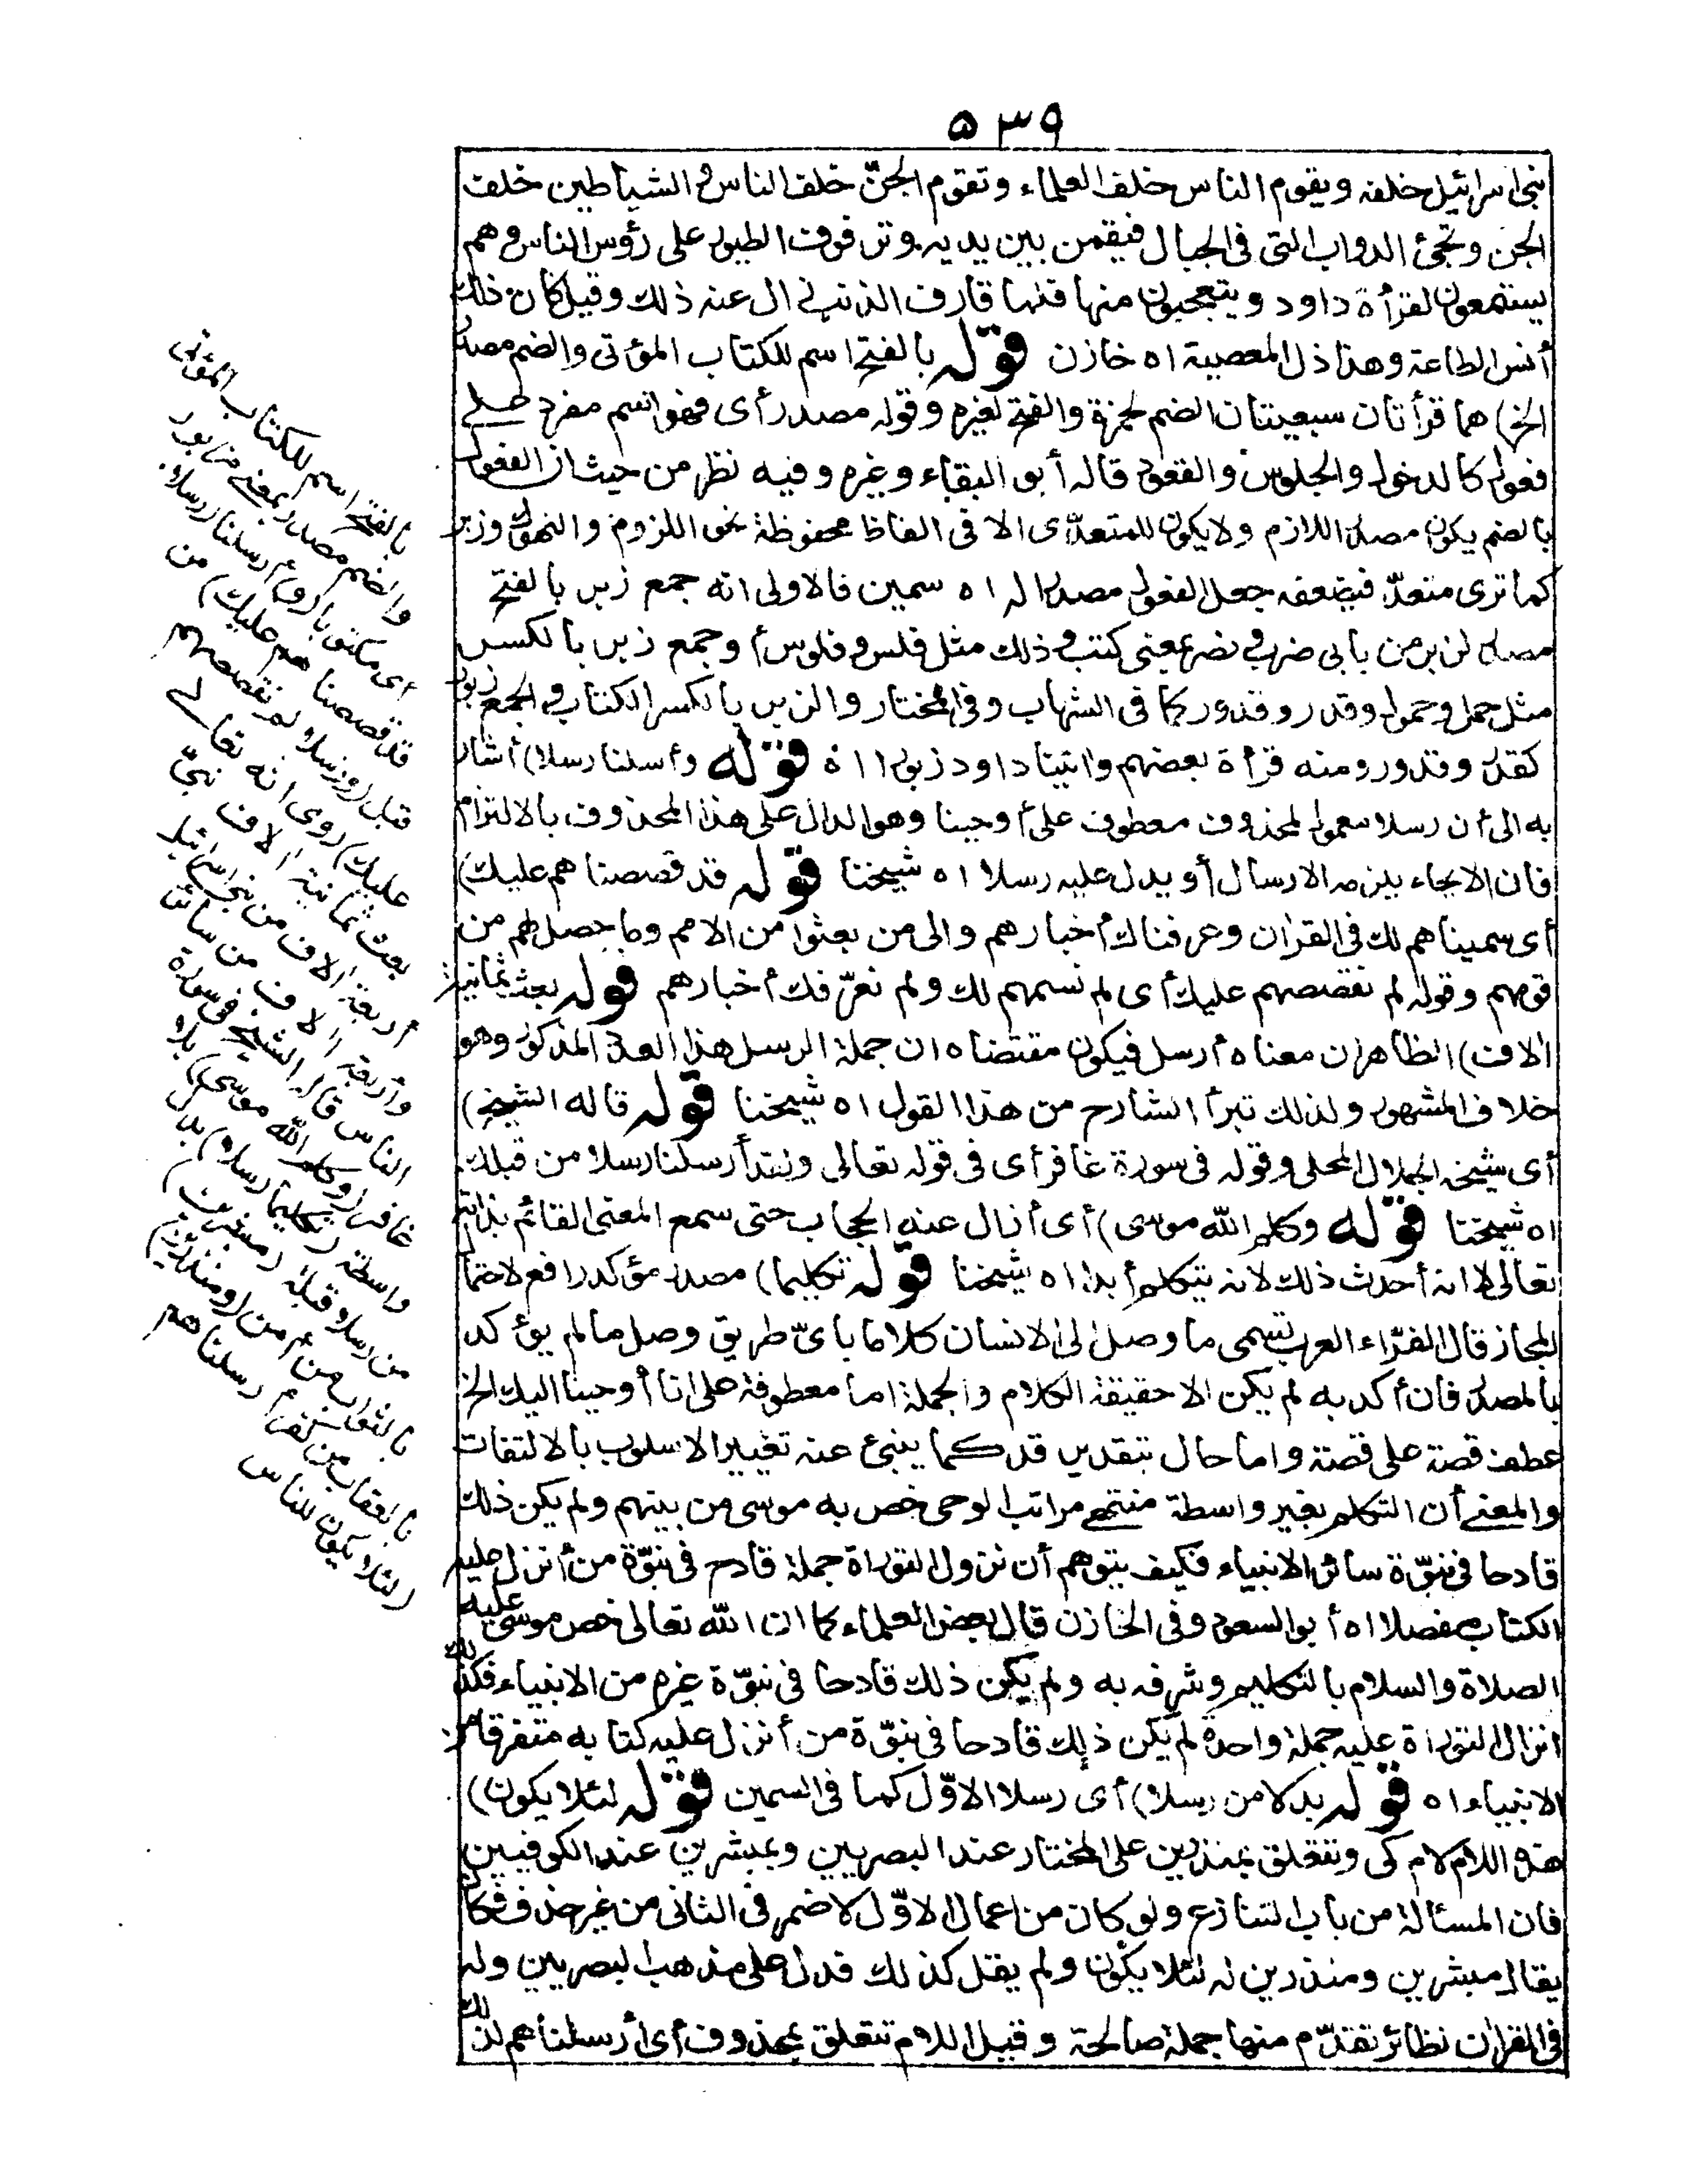 ٥٣٩
بنى اسرائيل خلفه ويقوم الناس خلف العلماء وتقوم الجنّ خلف الناس والشياطين خلف
الجن وتجئ الدواب التى فى الجبال فيقمن بين يديه وترفرف الطيور على رؤس الناس وهم
يستمعون لقرأة داود ويتعجبون منها فلما قارف الذنب زال عنه ذلك وقيل كان ذلك
أنس الطاعة وهذا ذل المعصية اه خازن قوله بالفتح اسم للكتاب المؤتى والضم مصدر
الخ) هما قرأتان سبعيتان الضم لحمزة والفتح لغيره وقوله مصدر أى فهو اسم مفرد على
فعول كالدخول والجلوس والقعود قاله أبو البقاء وغيره وفيه نظر من حيث ان الفعول
بالضم يكون مصدر اللازم ولا يكون للمتعدّى الا فى الفاظ محفوظة نحو اللزوم والنهوك وزبر
كما ترى متعدّ فيضعفه جعل الفعول مصدرا له اه سمين فالاولى انه جمع زبر بالفتح
مصدر لزبر من بابى ضرب ونصر بمعنى كتب وذلك مثل فلس وفلوس أو جمع زبر بالكسر
مثل حمل وحمول وقدر وقدور كما فى الشهاب وفى المختار والزبر بالكسر الكتاب والجمع زبور
كقدر وقدور ومنه قرأة بعضهم واتينا داود زبورا اه قوله وأرسلنا رسلا) أشار
به الى أن رسلا معمول لمحذوف معطوف على أوحينا وهو الدال على هذا المحذوف بالالتزام
فان الايحاء يلزمه الارسال أو يدل عليه رسلا اه شيخنا قوله قد قصصناهم عليك)
أى سميناهم لك فى القران وعرفناك أخبارهم والى من بعثوا من الامم وما حصل لهم من
قومهم وقوله لم نقصصهم عليك أى لم نسمهم لك ولم نعرّفك أخبارهم قوله بعث ثمانية
الاف) الظاهر ان معناه أرسل فيكون مقتضاه ان جملة الرسل هذا العدد المذكور وهو
خلاف المشهور ولذلك تبرأ الشارح من هذا القول اه شيخنا قوله قاله الشيخ)
أى شيخه الجلال المحلى وقوله فى سورة غافر أى فى قوله تعالى ولقد أرسلنا رسلا من قبلك
اه شيخنا قوله وكلم الله موسى) أى أزال عنه الحجاب حتى سمع المعنى القائم بذاته
تعالى لا انه أحدث ذلك لانه يتكلم أبدا اه شيخنا قوله تكليما) مصدر مؤكد رافع لاحتمال
المجاز قال الفرّاء العرب تسمى ما وصل الى الانسان كلاما باىّ طريق وصل ما لم يؤكد
بالمصدر فان أكد به لم يكن الا حقيقة الكلام والجملة اما معطوفة على انا أوحينا اليك الخ
عطف قصة على قصة واما حال بتقدير قد كما ينبئ عنه تغيير الاسلوب بالالتفات
والمعنى أن التكلم بغير واسطة منتهى مراتب الوحى خص به موسى من بينهم ولم يكن ذلك
قادحا فى نبوّة سائر الانبياء فكيف يتوهم أن نزول التوراة جملة قادح فى نبوّة من أنزل عليه
الكتاب مفصلا اه أبو السعود وفى الخازن قال بعض العلماء كما ان الله تعالى خص موسى عليه
الصلاة والسلام بالتكليم وشرفه به ولم يكن ذلك قادحا فى نبوّة غيره من الانبياء فكذلك
انزال التوراة عليه جملة واحدة لم يكن ذلك قادحا فى نبوّة من أنزل عليه كتابه متفرقا من
الانبياء اه قوله بدلا من رسلا) أى رسلا الاوّل كما فى السمين قوله لئلا يكون)
هذه اللام لام كى وتتعلق بمنذرين على المختار عند البصريين وبمبشرين عند الكوفيين
فان المسألة من باب التنازع ولو كان من اعمال الاوّل لاضمر فى الثانى من غير حذف فكان
يقال مبشرين ومنذرين له لئلا يكون ولم يقل كذلك فدل على مذهب البصريين وله
فى القران نظائر تقدّم منها جملة صالحة وقيل اللام تتعلق بمحذوف أى أرسلناهم لذلك
بالفتح اسم للكتاب المؤتى
والضم مصدر بمعنى مزبور
أى مكتوبا (و) أرسلنا (رسلا
قد قصصناهم عليك) من
قبل (ورسلا لم نقصصهم
عليك) روى انه تعالى
بعث ثمانية الاف نبىّ
أربعة الاف من بنى اسرائيل
وأربعة الاف من سائر
الناس قاله الشيخ فى سورة
غافر (وكلم الله موسى) بلا
واسطة (تكليما رسلا) بدل
من رسلا قبله (مبشرين)
بالثواب من أمن (ومنذرين)
بالعقاب من كفر أرسلناهم
(لئلا يكون للناس